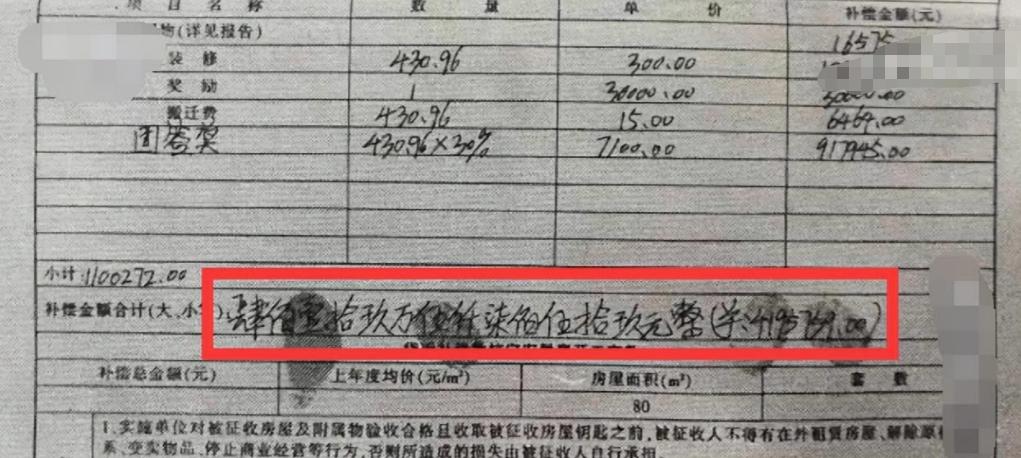 项目名称 数量 单价 补偿金额(元)
物(详见报告) 16575
装修 430.96 300.00
奖励 1 30000.00 30000.00
搬迁费 430.96 15.00 6464.00
团签奖 430.96×30% 7100.00 917945.00
小计:1100272.00
补偿金额合计(大、小 肆佰壹拾玖万伍仟柒佰伍拾玖元整(¥:4195759.00)
补偿总金额(元) 上年度均价(元/m²) 房屋面积(m²) 套数
80
1.实施单位对被征收房屋及附属物验收合格且收取被征收房屋钥匙之前,被征收人不得有在外租赁房屋、解除原
系、变卖物品、停止商业经营等行为,否则所造成的损失由被征收人自行承担。